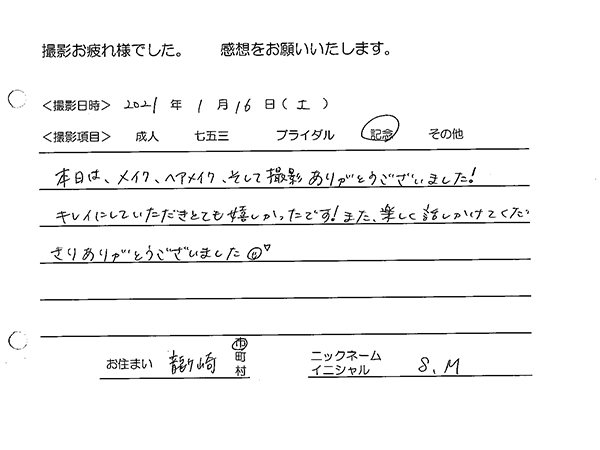 撮影お疲れ様でした。 感想をお願いいたします。
<撮影日時> 2021 年 1 月 16 日(土)
<撮影項目> 成人 七五三 ブライダル 記念 その他
本日は、メイク、ヘアメイク、そして撮影ありがとうございました!
キレイにしていただきとても嬉しかったです!また、楽しく話しかけてくだ
さりありがとうございました
お住まい 龍ケ崎 市町村
ニックネーム イニシャル S.M